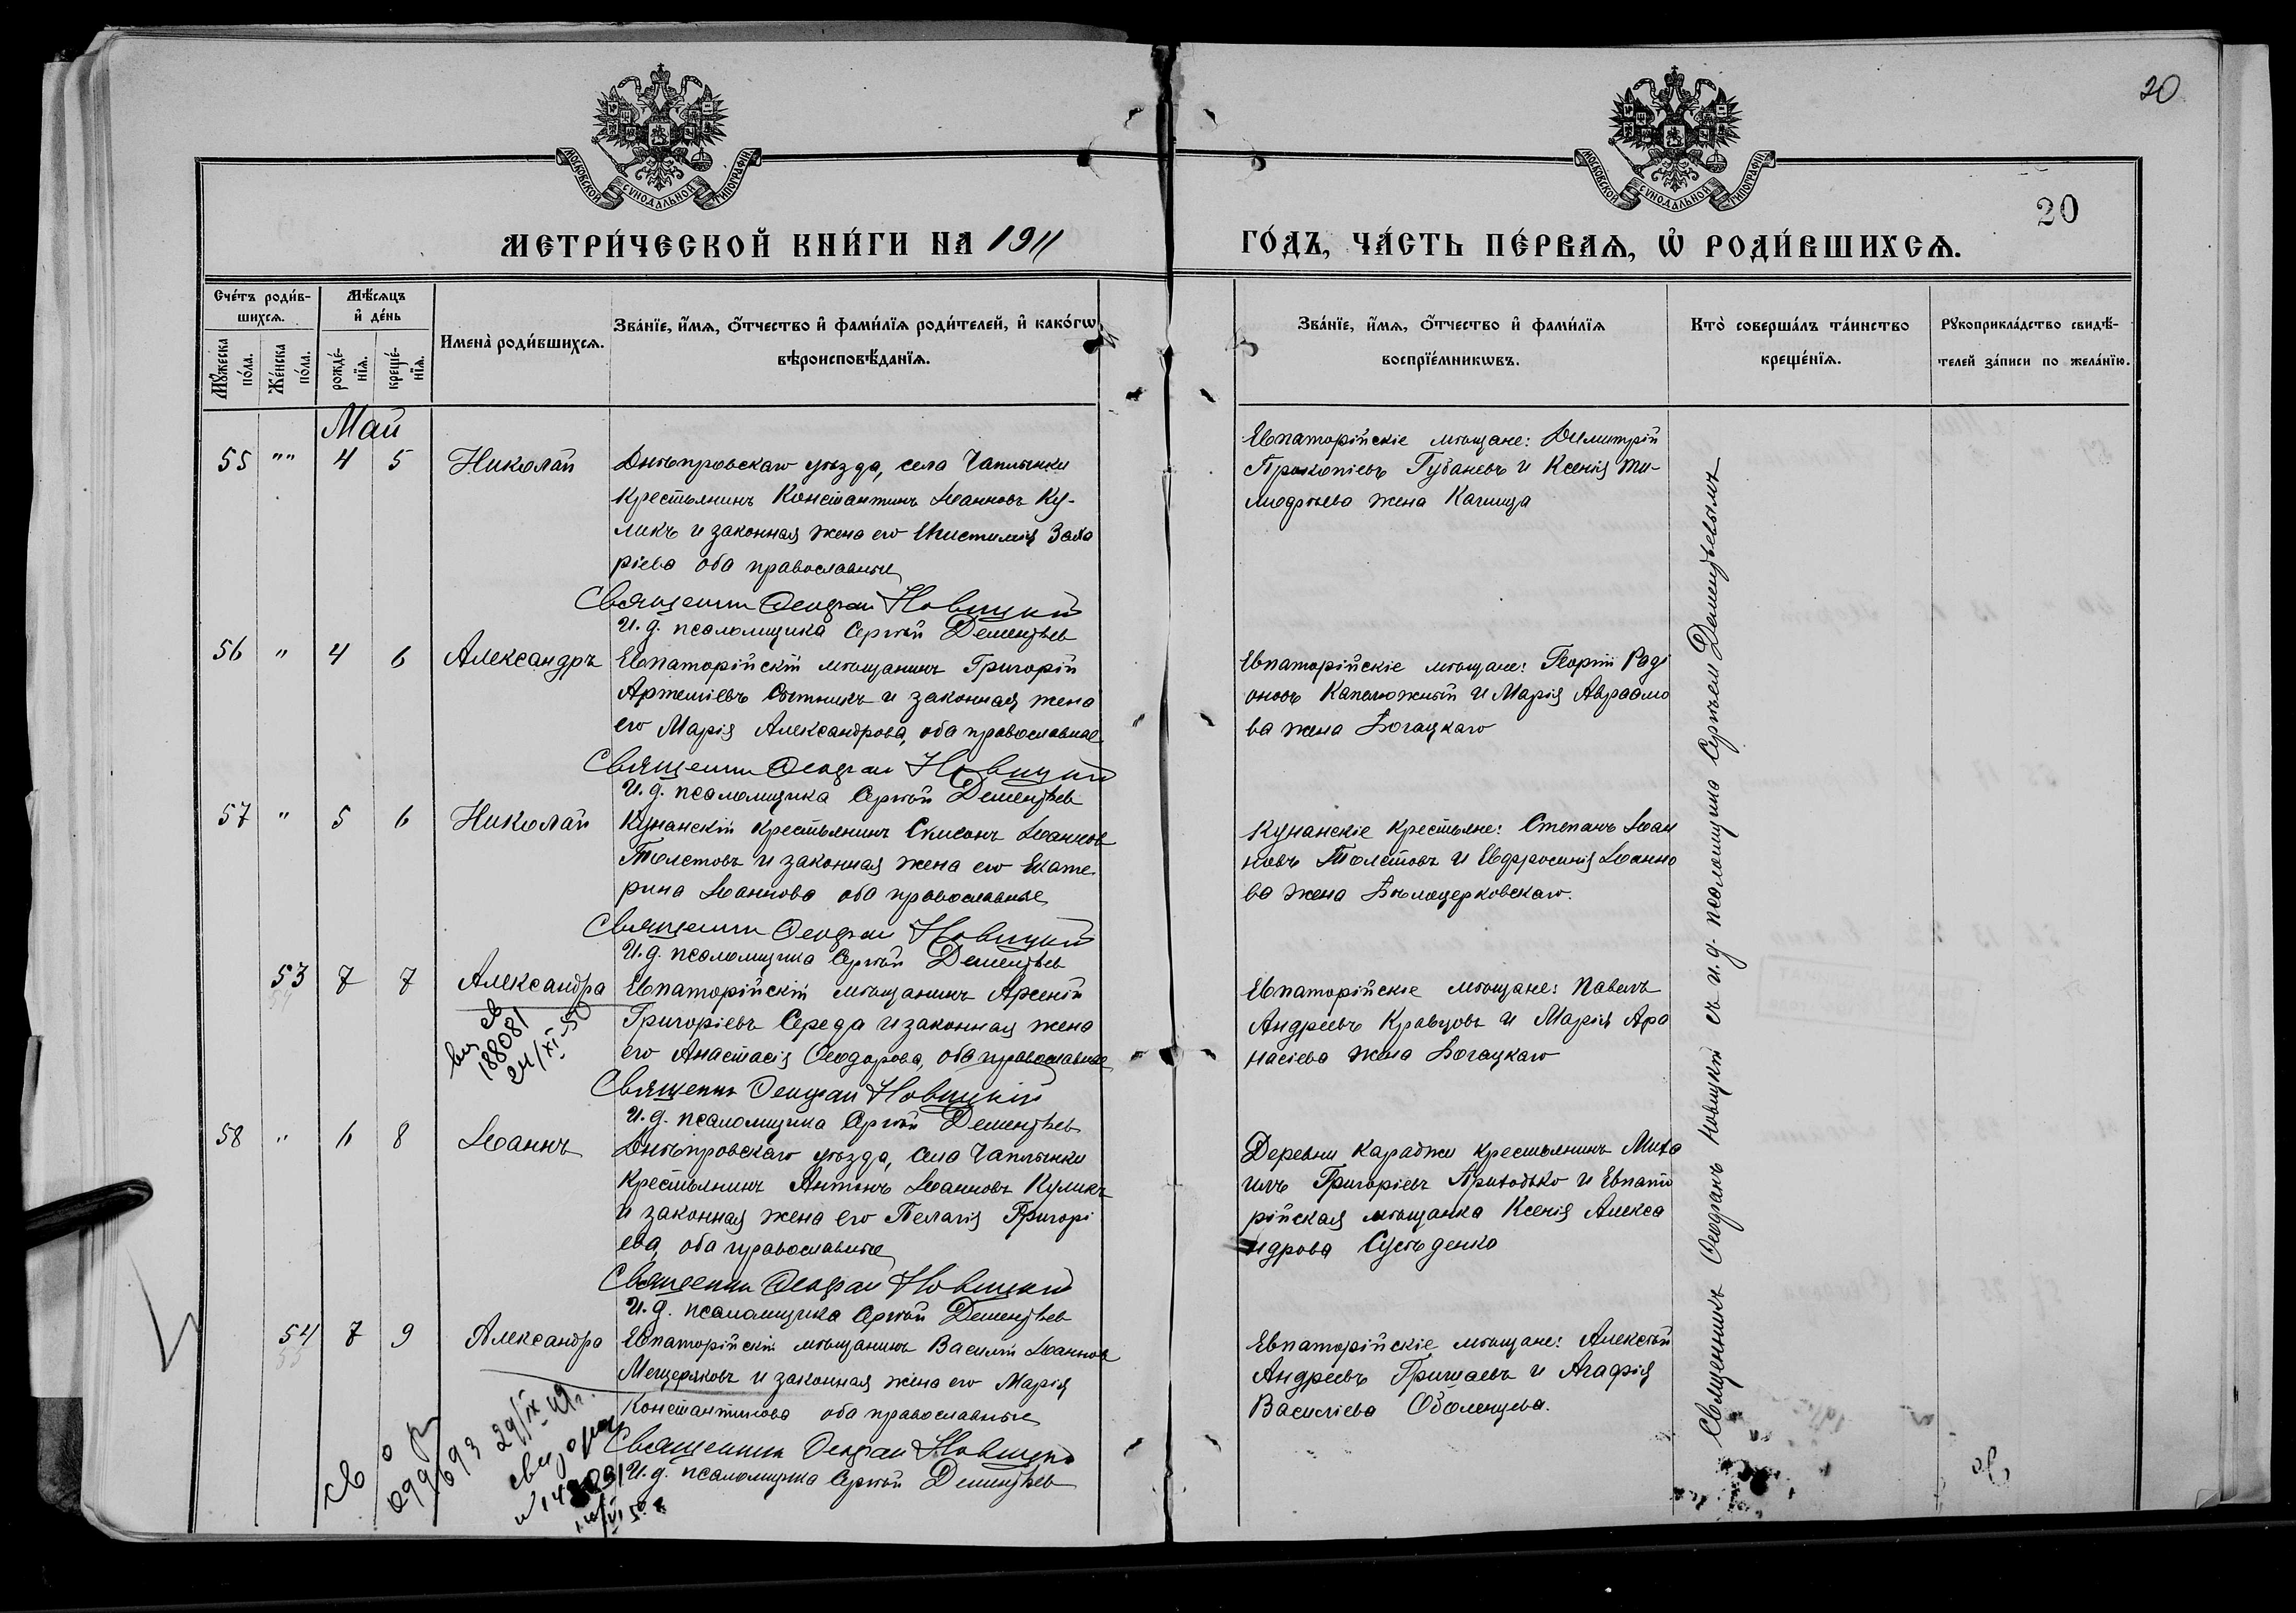 20
МОСКОВСКОЙ СУНОДАЛЬНОЙ ТИПОГРАФІИ
МОСКОВСКОЙ СУНОДАЛЬНОЙ ТИПОГРАФІИ
20
МЕТРИ́ЧЕСКОЙ КНИ́ГИ НА 1911
ГО́ДЪ, ЧА́СТЬ ПЕ́РВАѦ, Ѡ҆ РОДИ́ВШИХСѦ.
Сче́тъ роди́в-
шихсѧ.
Мꙋ́жеска по́ла.
Же́нска по́ла.
Мѣ́сѧцъ
и҆ де́нь
рожде́-
нїѧ.
креще́-
нїѧ.
Имена̀ роди́вшихсѧ.
Зва́нїе, и҆́мѧ, ѻ҆́тчество и҆ фами́лїѧ роди́телей, и҆ како́гѡ
вѣроисповѣ́данїѧ.
Зва́нїе, и҆́мѧ, ѻ҆́тчество и҆ фами́лїѧ
воспрїе́мникѡвъ.
Кто̀ соверша́лъ та́инство
креще́нїѧ.
Рꙋкоприкла́дство свидѣ́-
телей за́писи по жела́нїю.
Май
55 "" 4 5 Николай
Днѣпровскаго уѣзда, села Чаплынки
крестьянинъ Константинъ Іоанновъ Ку-
ликъ и законная жена его Епистимія Заха
ріева оба православные
Священник Феофан Новицкий
И. д. псаломщика Сергѣй Дементьев
Евпаторійскіе мѣщане: Димитрій
Прокопіевъ Губаневъ и Ксенія Ти-
моѳѣева жена
56 " 4 6 Александръ
Евпаторійскій мѣщанинъ Григорій
Артеміевъ Сытникъ и законная жена
его Марія Александрова, оба православные
Священник Феофан Новицкий
И. д. псаломщика Сергѣй Дементьев
Евпаторійскіе мѣщане: Георгій Роді
оновъ Капелюжный и Марія Авраамо
ва жена Богацкаго
57 " 5 6 Николай
Кунанскій крестьянинъ Симеонъ Іоаннов
Толстовъ и законная жена его Екате-
рина Іоаннова оба православные
Священник Феофан Новицкий
И. д. псаломщика Сергѣй Дементьев
Кунанскіе крестьяне: Степанъ Іоан
новъ Толстовъ и Евфросинія Іоанно
ва жена Бѣлоцерковскаго.
53 7 7 Александра
Евпаторійскій мѣщанинъ Арсеній
Григоріевъ Середа и законная жена
его Анастасія Ѳеодорова, оба православные
Священник Феофан Новицкий
И. д. псаломщика Сергѣй Дементьев
св
188081
24/XI-50
Евпаторійскіе мѣщане: Павелъ
Андреевъ Кравцовъ и Марія Аѳа
насіева жена Богацкаго
58 " 6 8 Іоаннъ
Днѣпровскаго уѣзда, села Чаплынки
крестьянинъ Антонъ Іоанновъ Куликъ
и законная жена его Пелагія Григорі
ева, оба православные
Священник Феофан Новицкий
И. д. псаломщика Сергѣй Дементьев
Деревни Караджи крестьянинъ Миха
илъ Григоріевъ Приходько и Евпато
рійская мѣщанка Ксенія Алекса
ндрова
54 7 9 Александра
Евпаторійскій мѣщанинъ Василій Іоаннов
Мещеряковъ и законная жена его Марія
Константинова оба православные
Священник Феофан Новицкий
И. д. псаломщика Сергѣй Дементьев
св о р
099693 29/IX-49г.
Евпаторійскіе мѣщане: Алексѣй
Андреевъ Гришаевъ и Агафія
Василіева Оболенцева.
Священникъ Ѳеофанъ Новицкій съ и. д. псаломщика Сергѣем Дементьевымъ